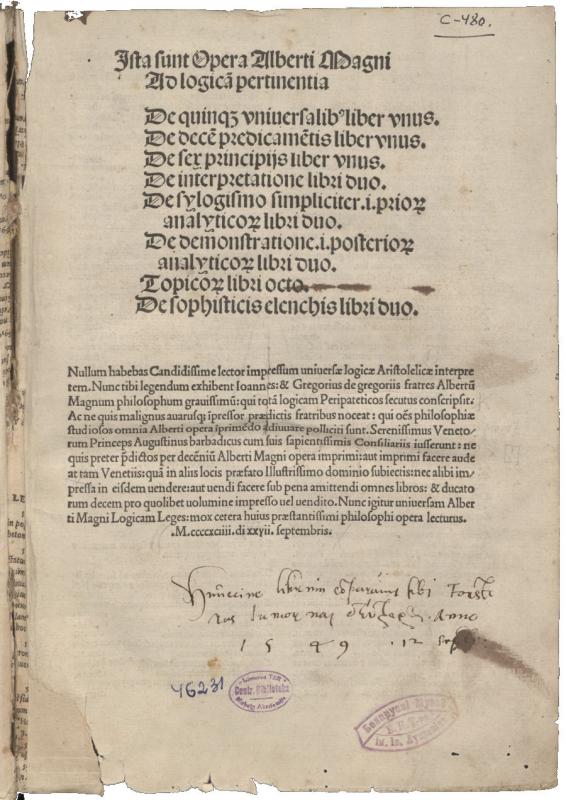 C-480.
Ista sunt Opera Alberti Magni
Ad logicā pertinentia
De quinqꝫ vniuersalibꝰ liber vnus.
De decē predicamētis liber vnus.
De sex principijs liber vnus.
De interpretatione libri duo.
De sylogismo simpliciter .i. prioꝝ
analyticoꝝ libri duo.
De demonstratione .i. posterioꝝ
analyticoꝝ libri duo.
Topicoꝝ libri octo.
De sophisticis elenchis libri duo.
Nullum habebas Candidissime lector impressum uniuersæ logicæ Aristotelicæ interpre
tem. Nunc tibi legendum exhibent Ioannes: & Gregorius de gregoriis fratres Albertū
Magnum philosophum grauissimū: qui totā logicam Peripateticos secutus conscripsit.
Ac ne quis malignus auarusq; ipressor prædictis fratribus noceat: qui oēs philosophiæ
studiosos omnia Alberti opera īprimēdo adiuuare polliciti sunt. Serenissimus Veneto-
rum Princeps Augustinus barbadicus cum suis sapientissimis Consiliariis iusserunt: ne
quis preter p̄dictos per decēniū Alberti Magni opera imprimi: aut imprimi facere aude
at tam Venetiis: quā in aliis locis præfato Illustrissimo dominio subiectis: nec alibi im-
pressa in eisdem uendere: aut uendi facere sub pena amittendi omnes libros: & ducato
rum decem pro quolibet uolumine impresso uel uendito. Nunc igitur uniuersam Alber
ti Magni Logicam Leges: mox cetera huius præstantissimi philosophi opera lecturus.
.M.cccclxxxxiiii. di xxvii. septembris.
librum sibi
Anno
1549 . 12 Sept
46231
Centr. Biblioteka